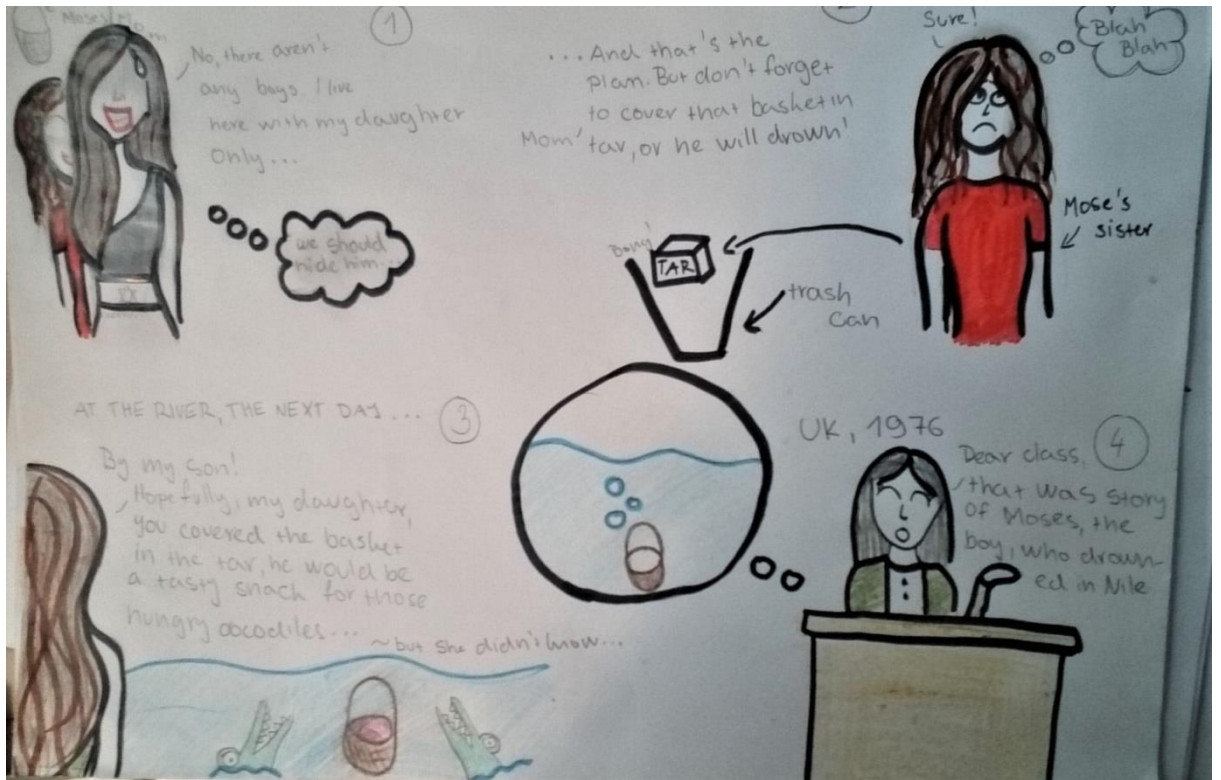 Moses'
Mom
1
No, there aren't
any boys. I live
here with my daughter
only...
we should
hide him...
2
...And that's the
plan. But don't forget
to cover that basket in
Mom' tar, or he will drown'
Sure!
Blah
Blah
Mose's
sister
Bang!
TAR
trash
can
AT THE RIVER, THE NEXT DAY...
3
By my son!
Hopefully, my daughter,
you covered the basket
in the tar, he would be
a tasty snack for those
hungry cocodiles...
~but she didn't know...
UK, 1976
4
Dear class,
that was story
of Moses, the
boy, who drown-
ed in Nile